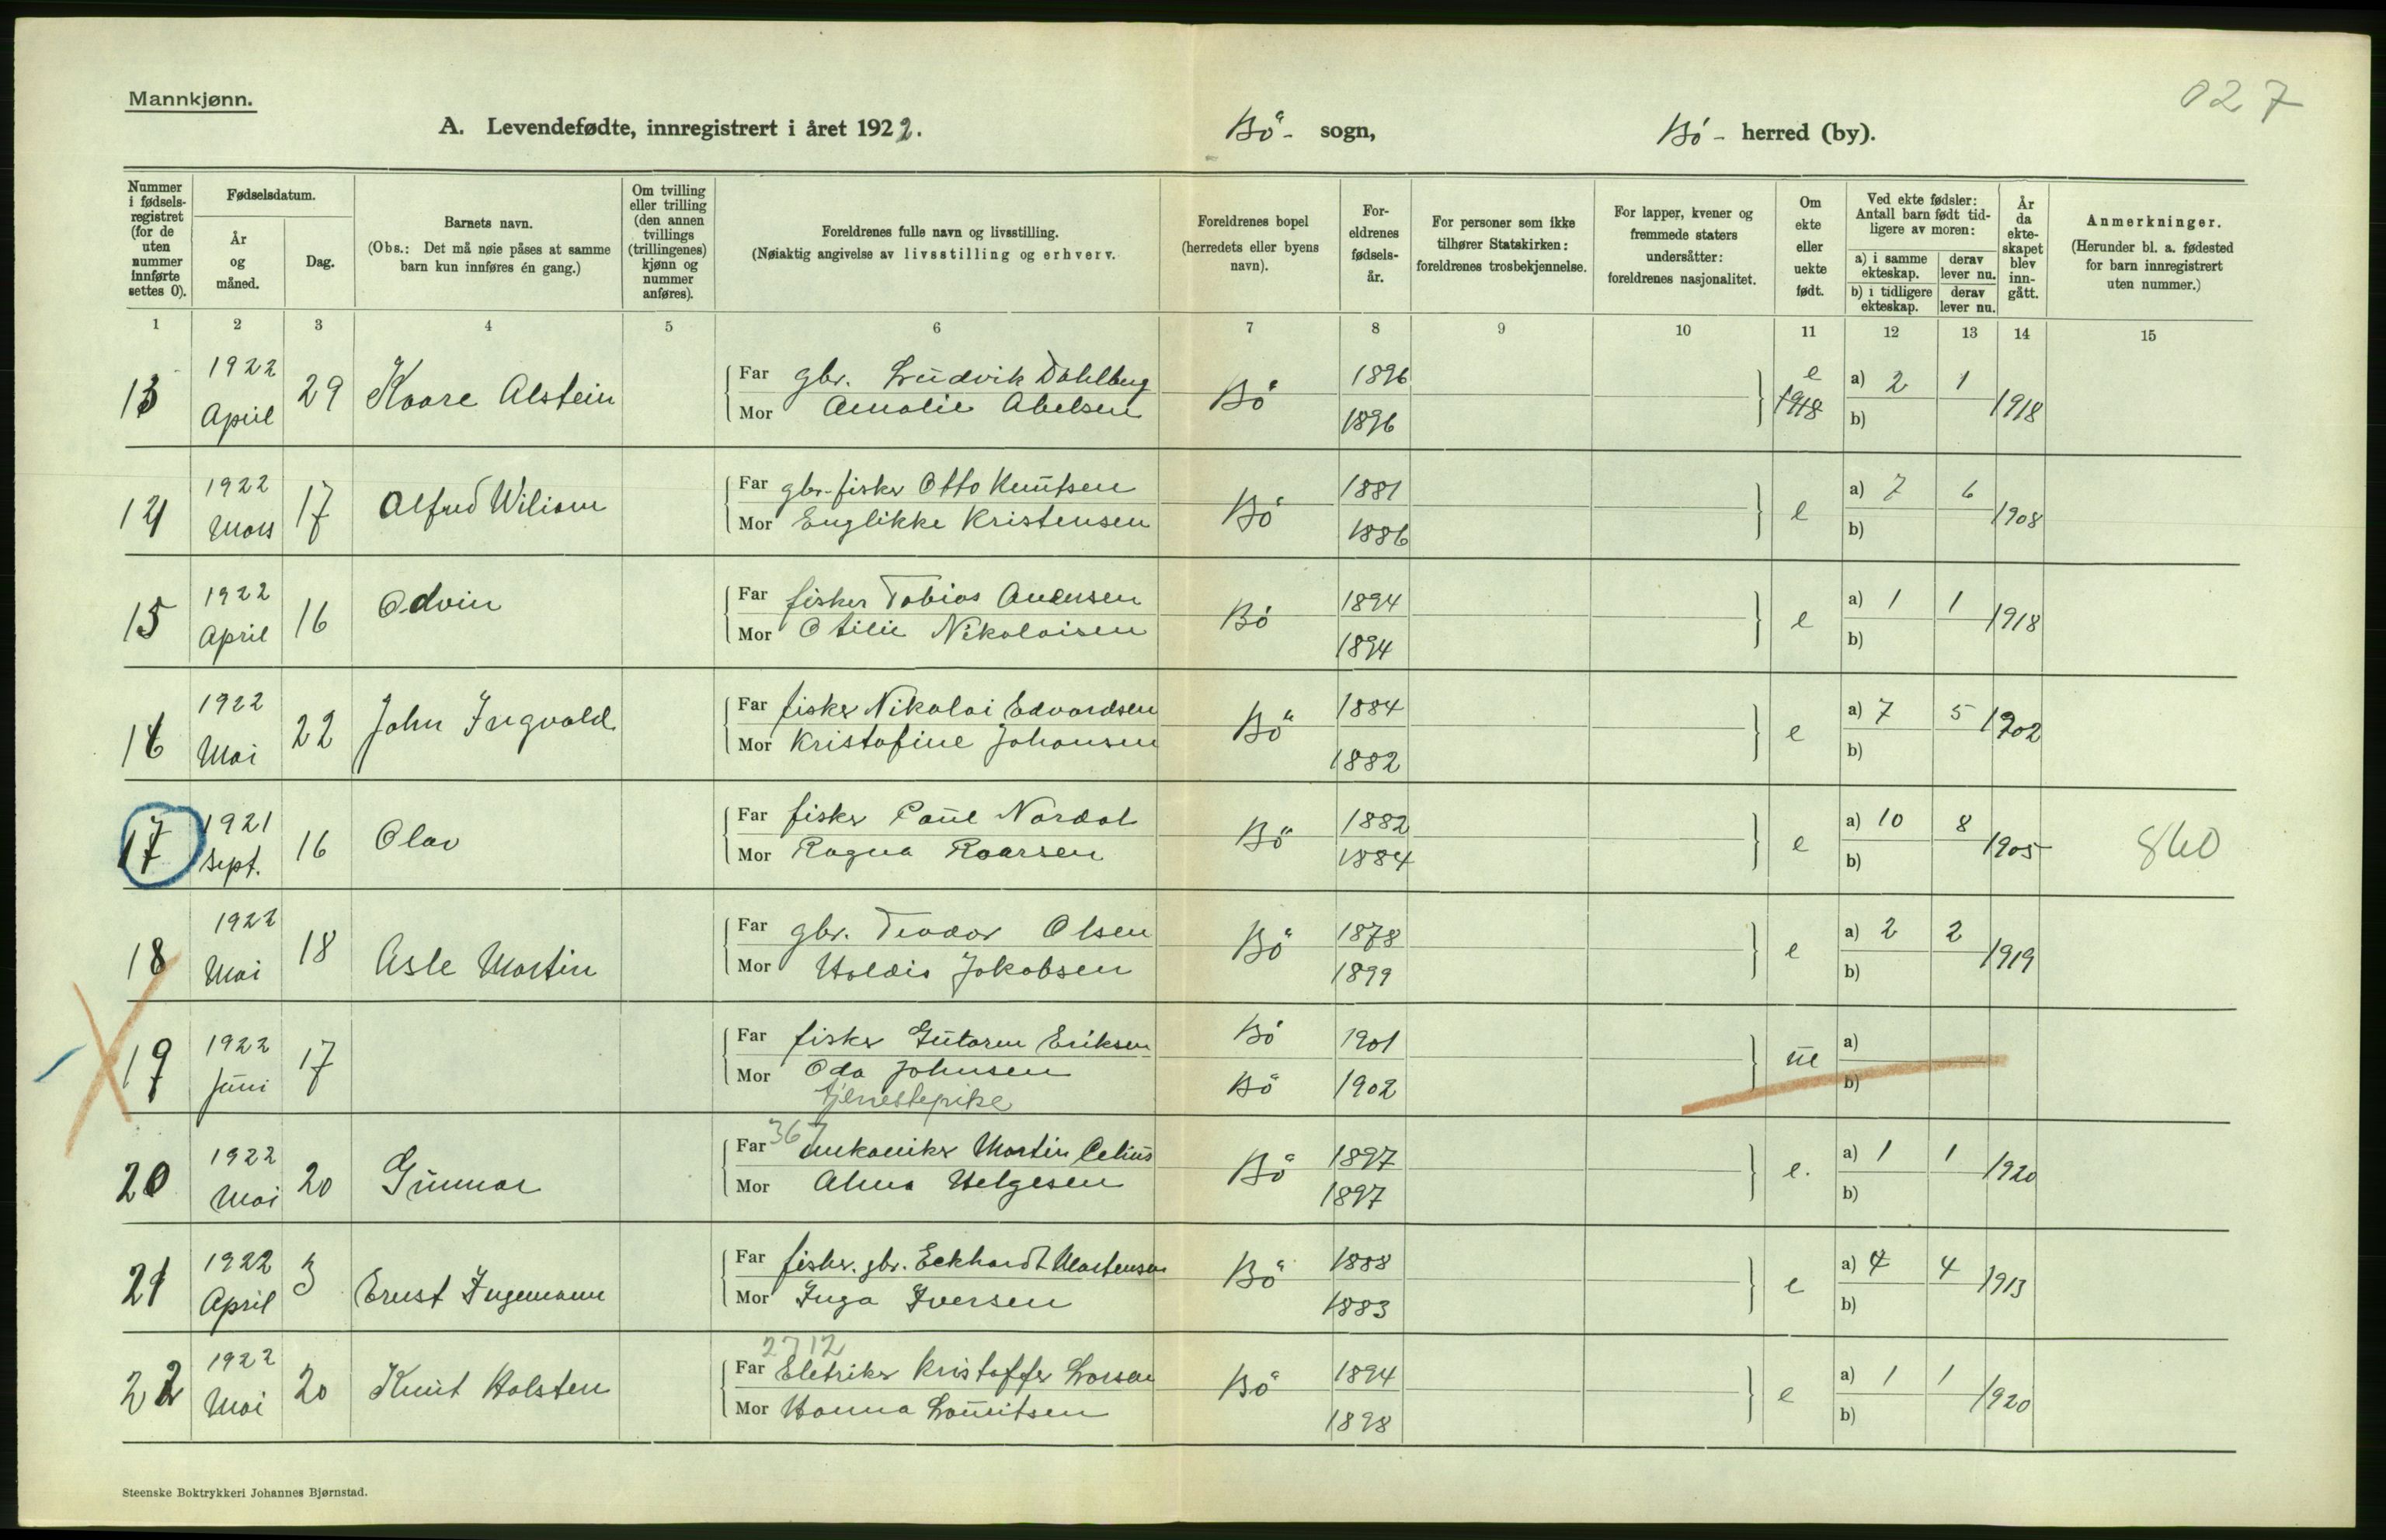 027
Mannkjønn.
A. Levendefødte, innregistrert i året 1922. Bö - sogn, Bö - herred (by).
Nummer i fødselsregistret (for de uten nummer innførte settes 0).
Fødselsdatum.
År og måned.
Dag.
Barnets navn.
(Obs.: Det må nøie påses at samme barn kun innføres én gang.)
Om tvilling eller trilling (den annen tvillings (trillingenes) kjønn og nummer anføres).
Foreldrenes fulle navn og livsstilling.
(Nøiaktig angivelse av livsstilling og erhverv.
Foreldrenes bopel (herredets eller byens navn).
Foreldrenes fødselsår.
For personer som ikke tilhører Statskirken: foreldrenes trosbekjennelse.
For lapper, kvener og fremmede staters undersåtter: foreldrenes nasjonalitet.
Om ekte eller uekte født.
Ved ekte fødsler: Antall barn født tidligere av moren:
a) i samme ekteskap. derav lever nu.
b) i tidligere ekteskap. derav lever nu.
År da ekteskapet blev inngått.
Anmerkninger.
(Herunder bl. a. fødested for barn innregistrert uten nummer.)
1 2 3 4 5 6 7 8 9 10 11 12 13 14 15
13 1922 April 29 Kaare Alstein Far gbr. Ludvik Dahlberg Bö 1896 e 1918 a) 2 1 1918
Mor Amalie Abelsen 1896 b)
14 1922 Mars 17 Alfred Wiliam Far gbr. fisker Otto Knutsen Bö 1881 e a) 7 6 1908
Mor Englikke Kristensen 1886 b)
15 1922 April 16 Odvin Far fisker Tobias Andersen Bö 1894 e a) 1 1 1918
Mor Otilie Nikolaisen 1894 b)
16 1922 Mai 22 John Ingvald Far fisker Nikolai Edvardsen Bö 1884 e a) 7 5 1902
Mor Kristofine Johansen 1882 b)
17 1921 Sept. 16 Olav Far fisker Paul Nordal Bö 1882 e a) 10 8 1905 860
Mor Ragna Roarsen 1884 b)
18 1922 Mai 18 Asle Martin Far gbr. Teodor Olsen Bö 1878 e a) 2 2 1919
Mor Haldis Jakobsen 1899 b)
19 1922 Juni 17 Far fisker Gutorm Eriksen Bö 1901 ue a)
Mor Oda Johnsen Bö 1902 b)
tjenestepike
367
20 1922 Mai 20 Gunnar Far mekaniker Martin Celius Bö 1897 e. a) 1 1 1920
Mor Alma Helgesen 1897 b)
21 1922 April 3 Ernst Ingemann Far fisker. gbr. Eckhardt Martensen Bö 1888 e a) 4 4 1913
Mor Inga Iversen 1883 b)
2712
22 1922 Mai 20 Knut Halsten Far Eletriker Kristoffer Larsen Bö 1894 e a) 1 1 1920
Mor Hanna Lauritsen 1898 b)
Steenske Boktrykkeri Johannes Bjørnstad.